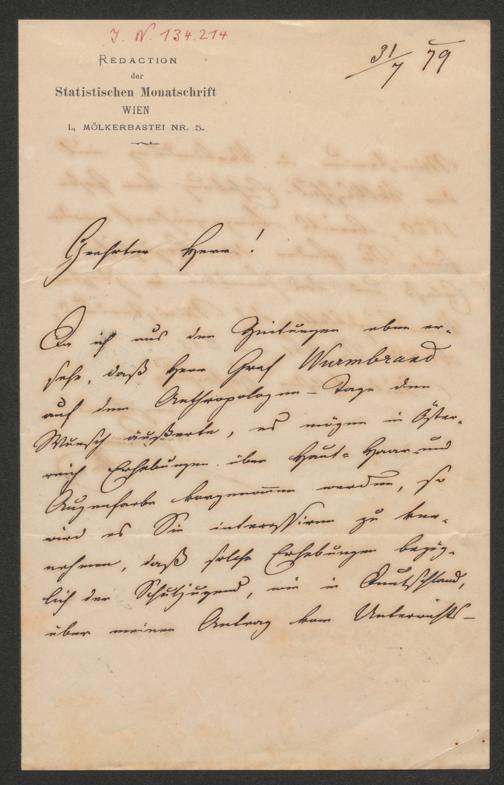 J. N. 134.214
31/7 79
REDACTION
der
Statistischen Monatschrift
WIEN
I., MÖLKERBASTEI NR. 5.
Geehrter Herr!
Da ich aus den Zeitungen eben er-
sehe, daß Herr Graf Wurmbrand
auf dem Anthropologen-Tage den
Wunsch äußerte, es mögen in Öster-
reich Erhebungen über Haut- Haar- und
Augenfarbe vorgenommen werden, so
wird es Sie interessiren zu ver-
nehmen, daß solche Erhebungen bezüg-
lich der Schuljugend, wie in Deutschland,
über meinen Antrag vom Unterrichts-